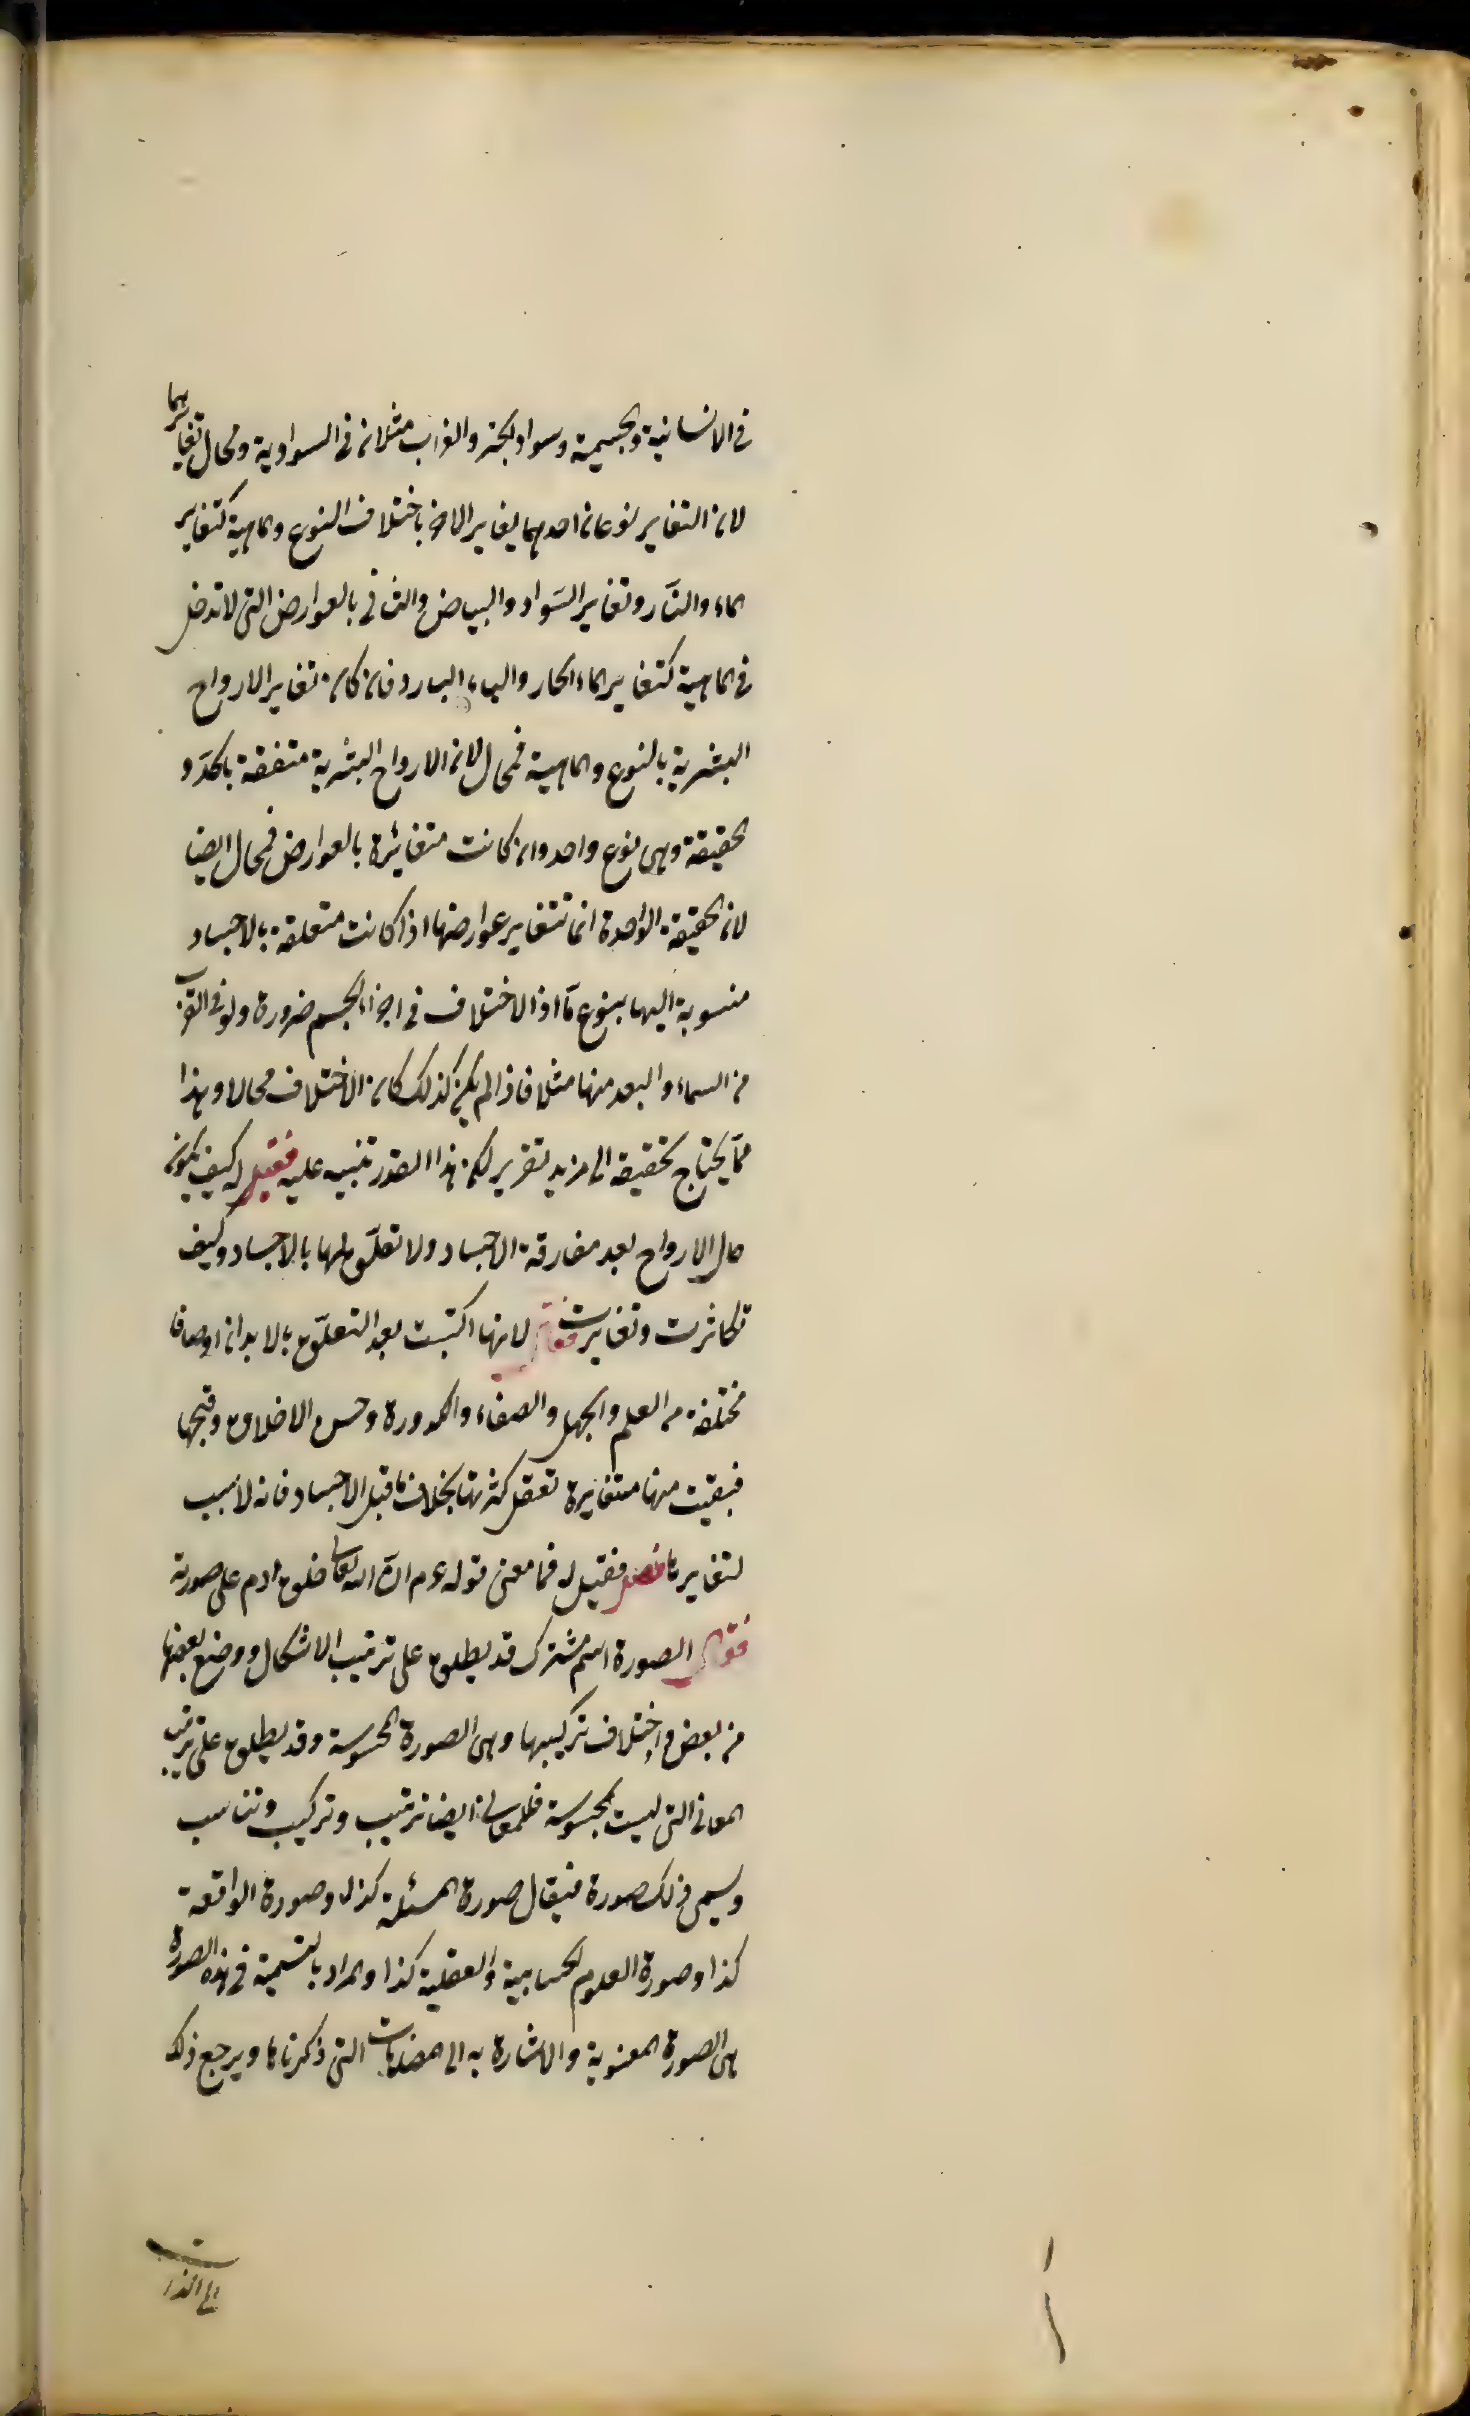 في الانسانية والجسمية وسواد الحبر والغراب مثلان في السوادية ومحال تغايرهما
لان التغاير نوعان احدهما يغاير الاخر باختلاف النوع والماهية كتغاير
الماء والنّار وتغاير السّواد والبياض والثاني بالعوارض التي لا تدخل
في الماهية كتغاير الماء الحار والماء البارد فان كان تغاير الارواح
البشرية بالنوع والماهية فمحال لان الارواح البشرية متفقة بالحدّ و
الحقيقة وهي نوع واحد وان كانت متغائرة بالعوارض فمحال ايضا
لان الحقيقة الواحدة انما تتغاير عوارضها اذا كانت متعلقة بالاجساد
منسوبة اليها بنوع مّا اذ الاختلاف في اجزاء الجسم ضرورة ولو في القرب
من السماء والبعد منها مثلا فاذا لم يكن كذلك كان الاختلاف محالا وهذا
ممّا يحتاج تحقيقه الى مزيد تقرير لكن هذا القدر تنبيه عليه فقيل له كيف يكون
حال الارواح بعد مفارقة الاجساد ولا تعلّق لها بالاجساد وكيف
تكاثرت وتغايرت فقال لانها اكتسبت بعد التعلّق بالابدان اوصافا
مختلفة من العلم والجهل والصفاء والكدورة وحسن الاخلاق وقبحها
فبقيت منها متغايرة تعقل كثرتها بخلاف ما قبل الاجساد فانه لا سبب
لتغايرها فصل فقيل له فما معنى قوله عم انّ الله تعالى خلق ادم على صورته
فقال الصورة اسم مشترك قد يطلق على ترتيب الاشكال ووضع بعضها
من بعض واختلاف تركيبها وهي الصورة المحسوسة وقد يطلق على ترتيب
المعاني التي ليست بمحسوسة فللمعاني ايضا ترتيب وتركيب وتناسب
ويسمى ذلك صورة فيقال صورة المسئلة كذا وصورة الواقعة
كذا وصورة العلوم الحسابية والعقلية كذا والمراد بالتسمية في هذه الصورة
هي الصورة المعنوية والاشارة به الى المضاهات التي ذكرناها ويرجع ذلك
الى الذات